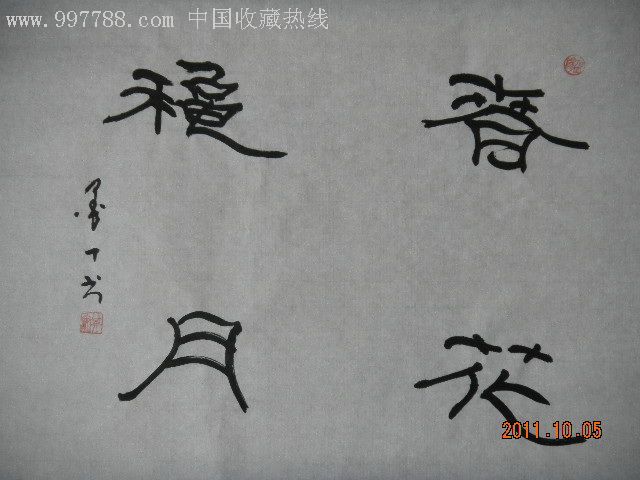 www.997788.com 中国收藏热线
春花
穐月
书
2011.10.05